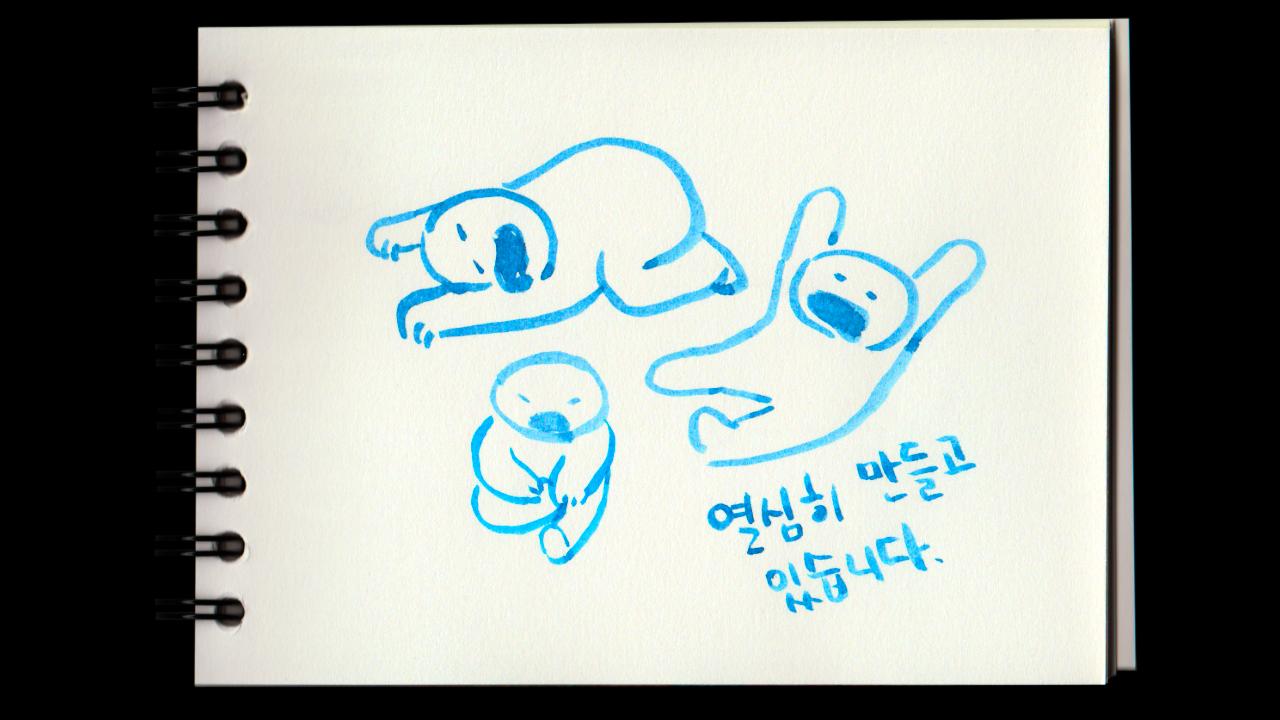 열심히 만들고
있습니다.